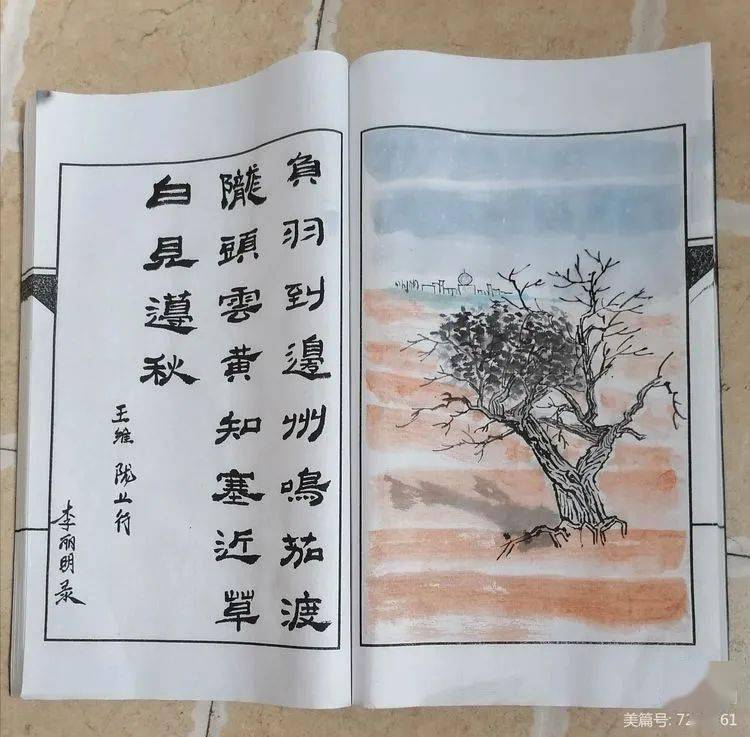 負羽到邊州鳴茄渡
隴頭雲黃知塞近草
白見邊秋
王维 陇上行
李丽明录
美篇号: 72 61